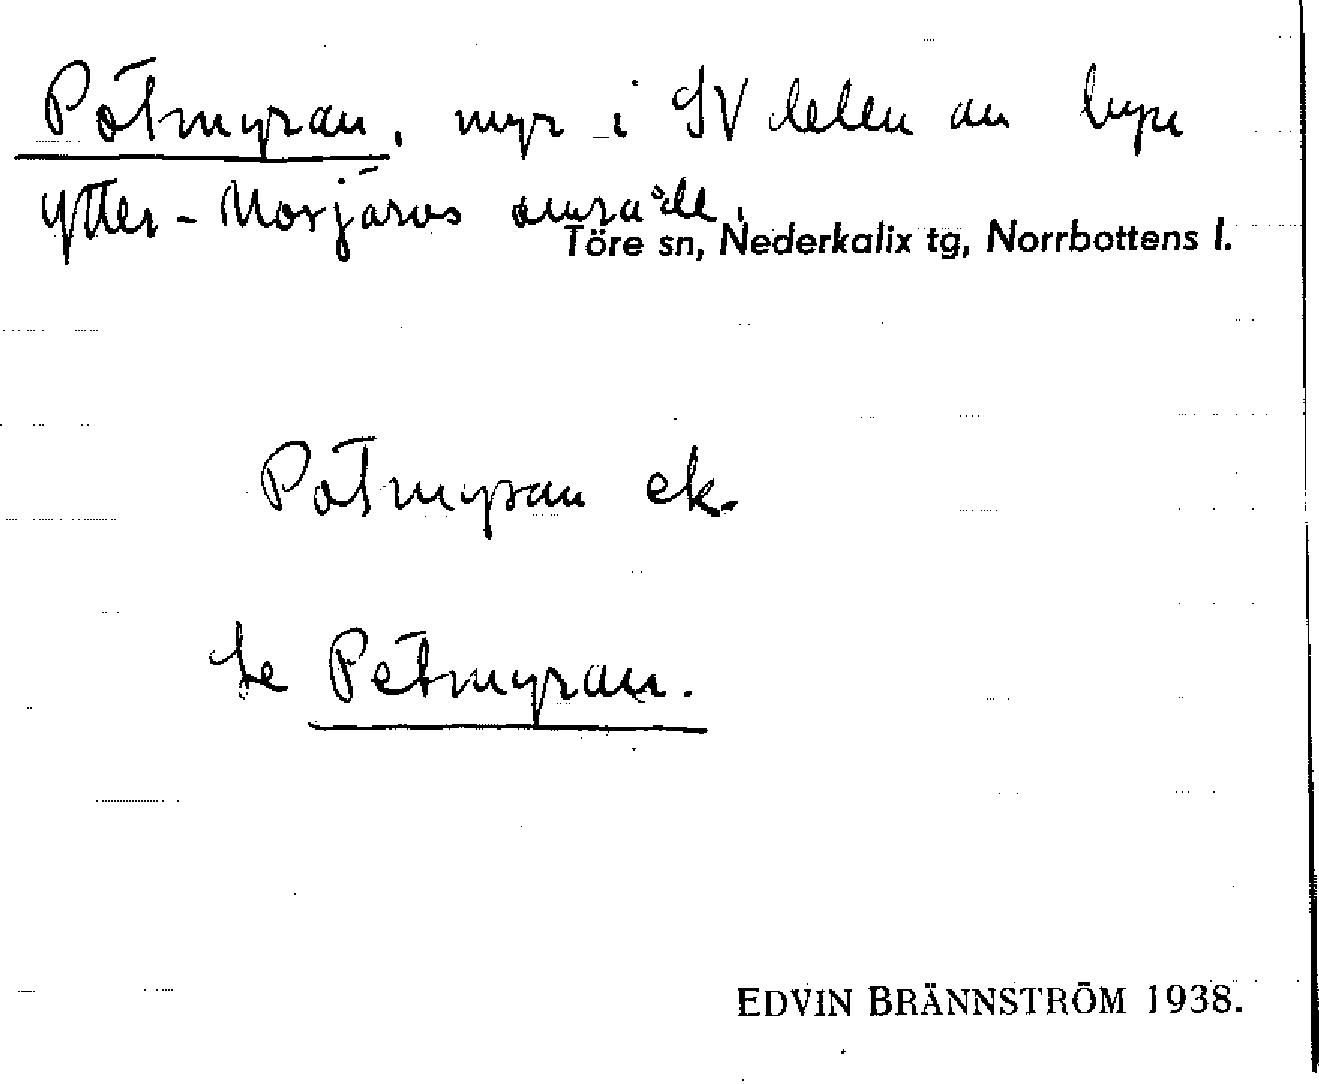 Potmyran, myr i SV delen av byn
Ytter-Morjärvs område.
Töre sn, Nederkalix tg, Norrbottens l.
Potmyran ek.
Se Petmyran.
EDVIN BRÄNNSTRÖM 1938.